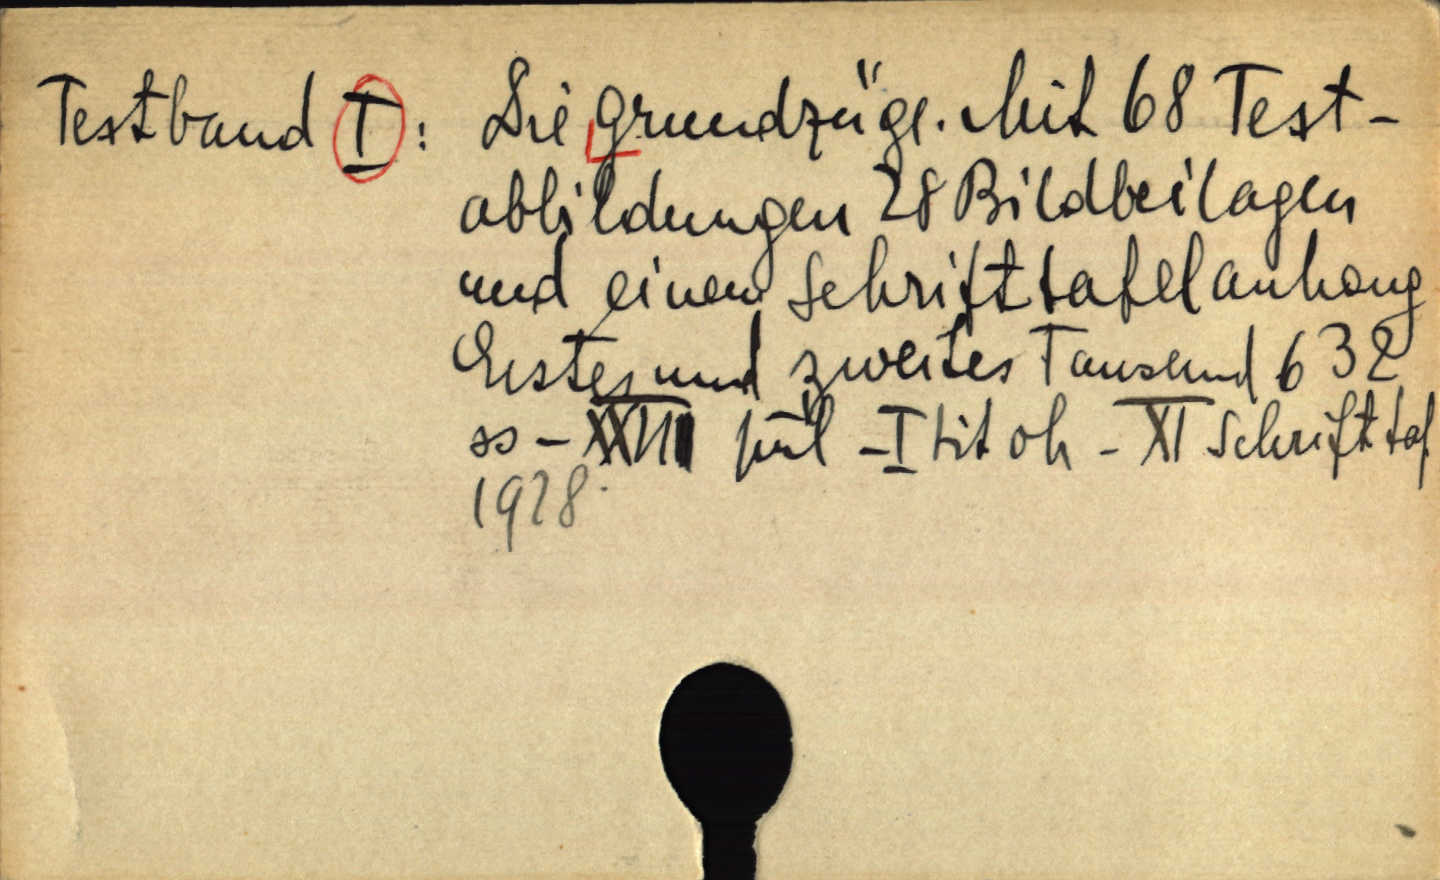 Textband I : Die Grundzüge. Mit 68 Text-
abbildungen 28 Bildbeilagen
und einem Schrifttafelanhang
Erstes und zweites Tausend 632
ss - XXIII pül - I tit oh - XI Schrifttaf
1928.